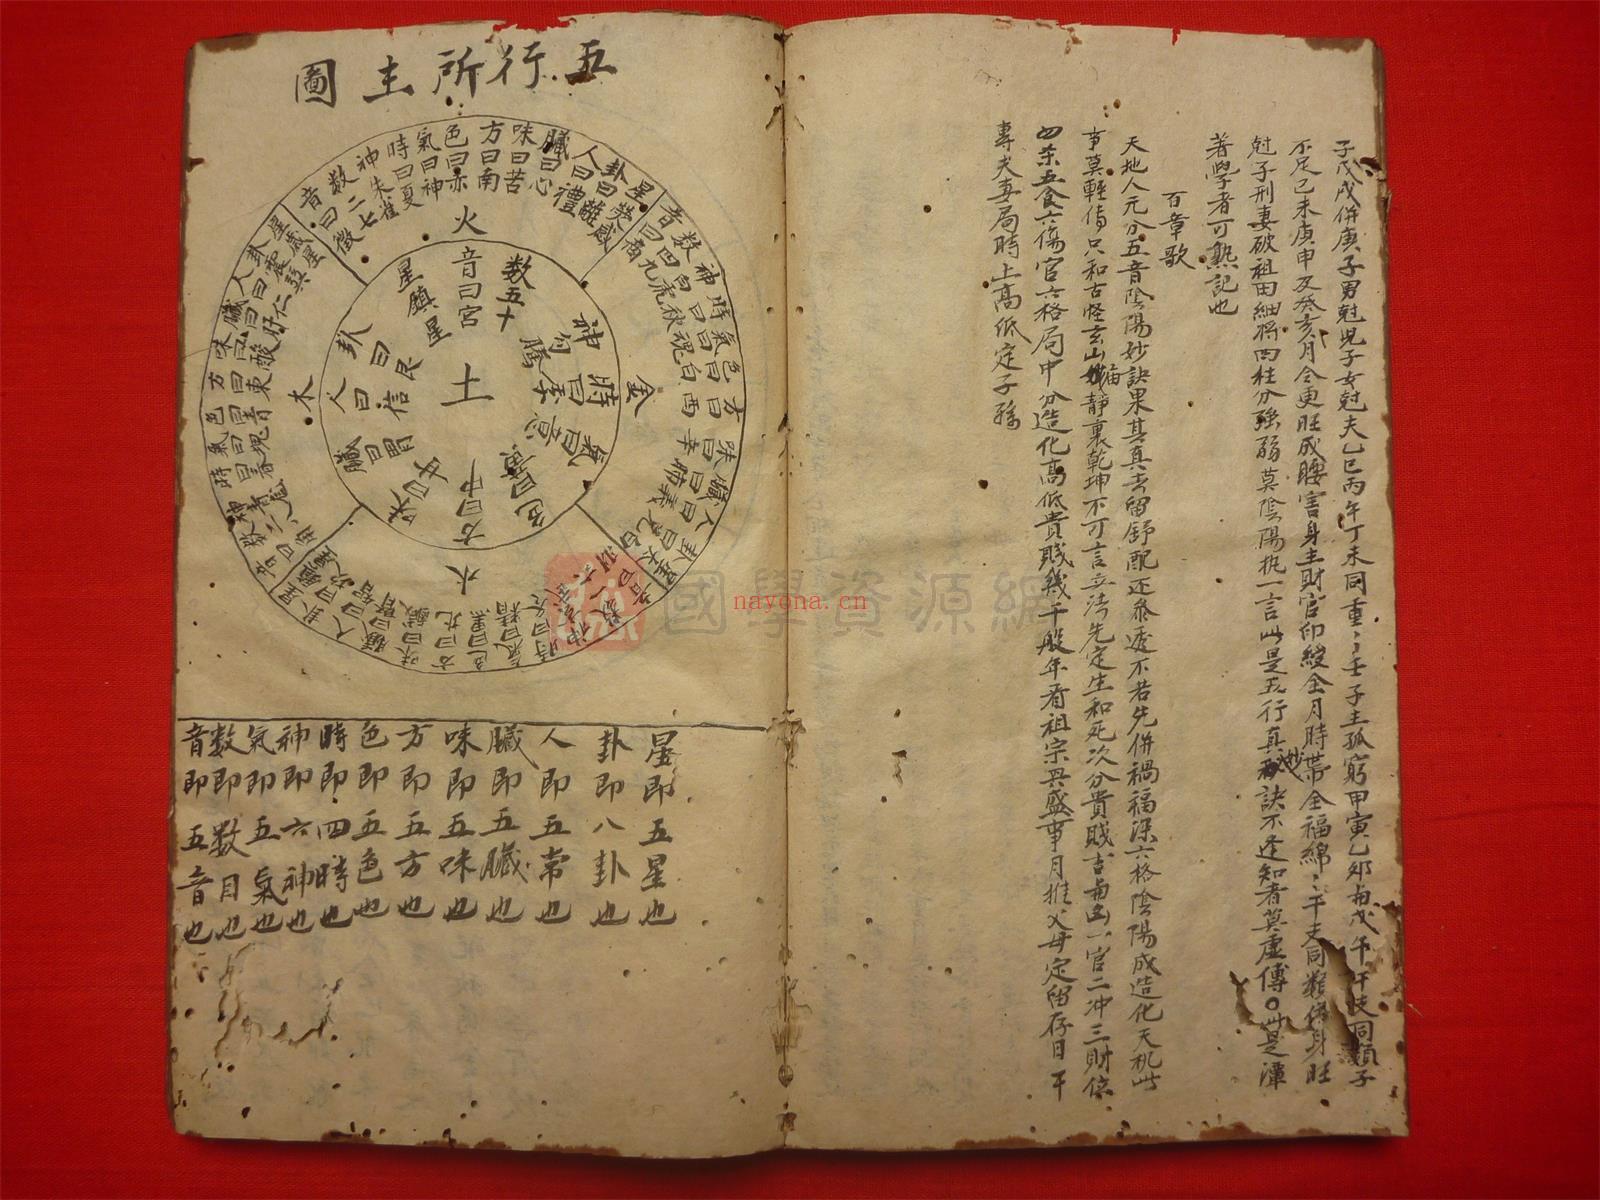 子戊戌併庚子男尅児子女尅夫乙巳丙午丁未同重〻壬子主孤窮甲寅乙卯与戊午干支同類子
不足己未庚申及癸亥月令更旺成腰害身主財官印綬全月時帶全福綿〻干支同類併身旺
尅子刑妻破祖田細將四柱分強弱莫陰陽執一言此是五行真妙訣不逢知者莫虛傳〇此是渾
著學者可熟記也
百章歌
天地人元分五音陰陽妙訣果其真去留舒配还參透不若先併禍福深六格陰陽成造化天机此
事莫輕傳只和古怪玄山描静裏乾坤不可言立法先定生和死次分貴賤吉与凶一官二冲三財
四杀五食六傷官六格局中分造化高低貴賤幾千般年看祖宗興盛事月推父母定留存日干
專夫妻局時上高低定子孫
五行所主圖
火
星熒惑
卦曰離
人曰禮
臓曰心
味曰苦
方曰南
色曰赤
氣曰神
時曰夏
神朱雀
数二七
音曰徵
金
音曰商
数四九
神白虎
時曰秋
氣曰魂
色曰白
方曰西
味曰辛
臓曰肺
人曰義
水
数一六
時曰冬
氣曰精
色曰黑
方曰北
味曰鹹
臓曰腎
人曰智
卦曰坎
木
卦曰震
人曰仁
臓曰肝
味曰酸
方曰東
色曰青
土
音曰宮
数五十
神勾騰
時曰季
氣曰意
色曰黄
方曰中
味曰甘
臓曰胃
人曰信
卦曰艮
星鎮星
星即五星也
卦即八卦也
人即五常也
臓即五臓也
味即五味也
方即五方也
色即五色也
時即四時也
神即六神也
氣即五氣也
数即数目也
音即五音也
國學資源網
nayona.cn